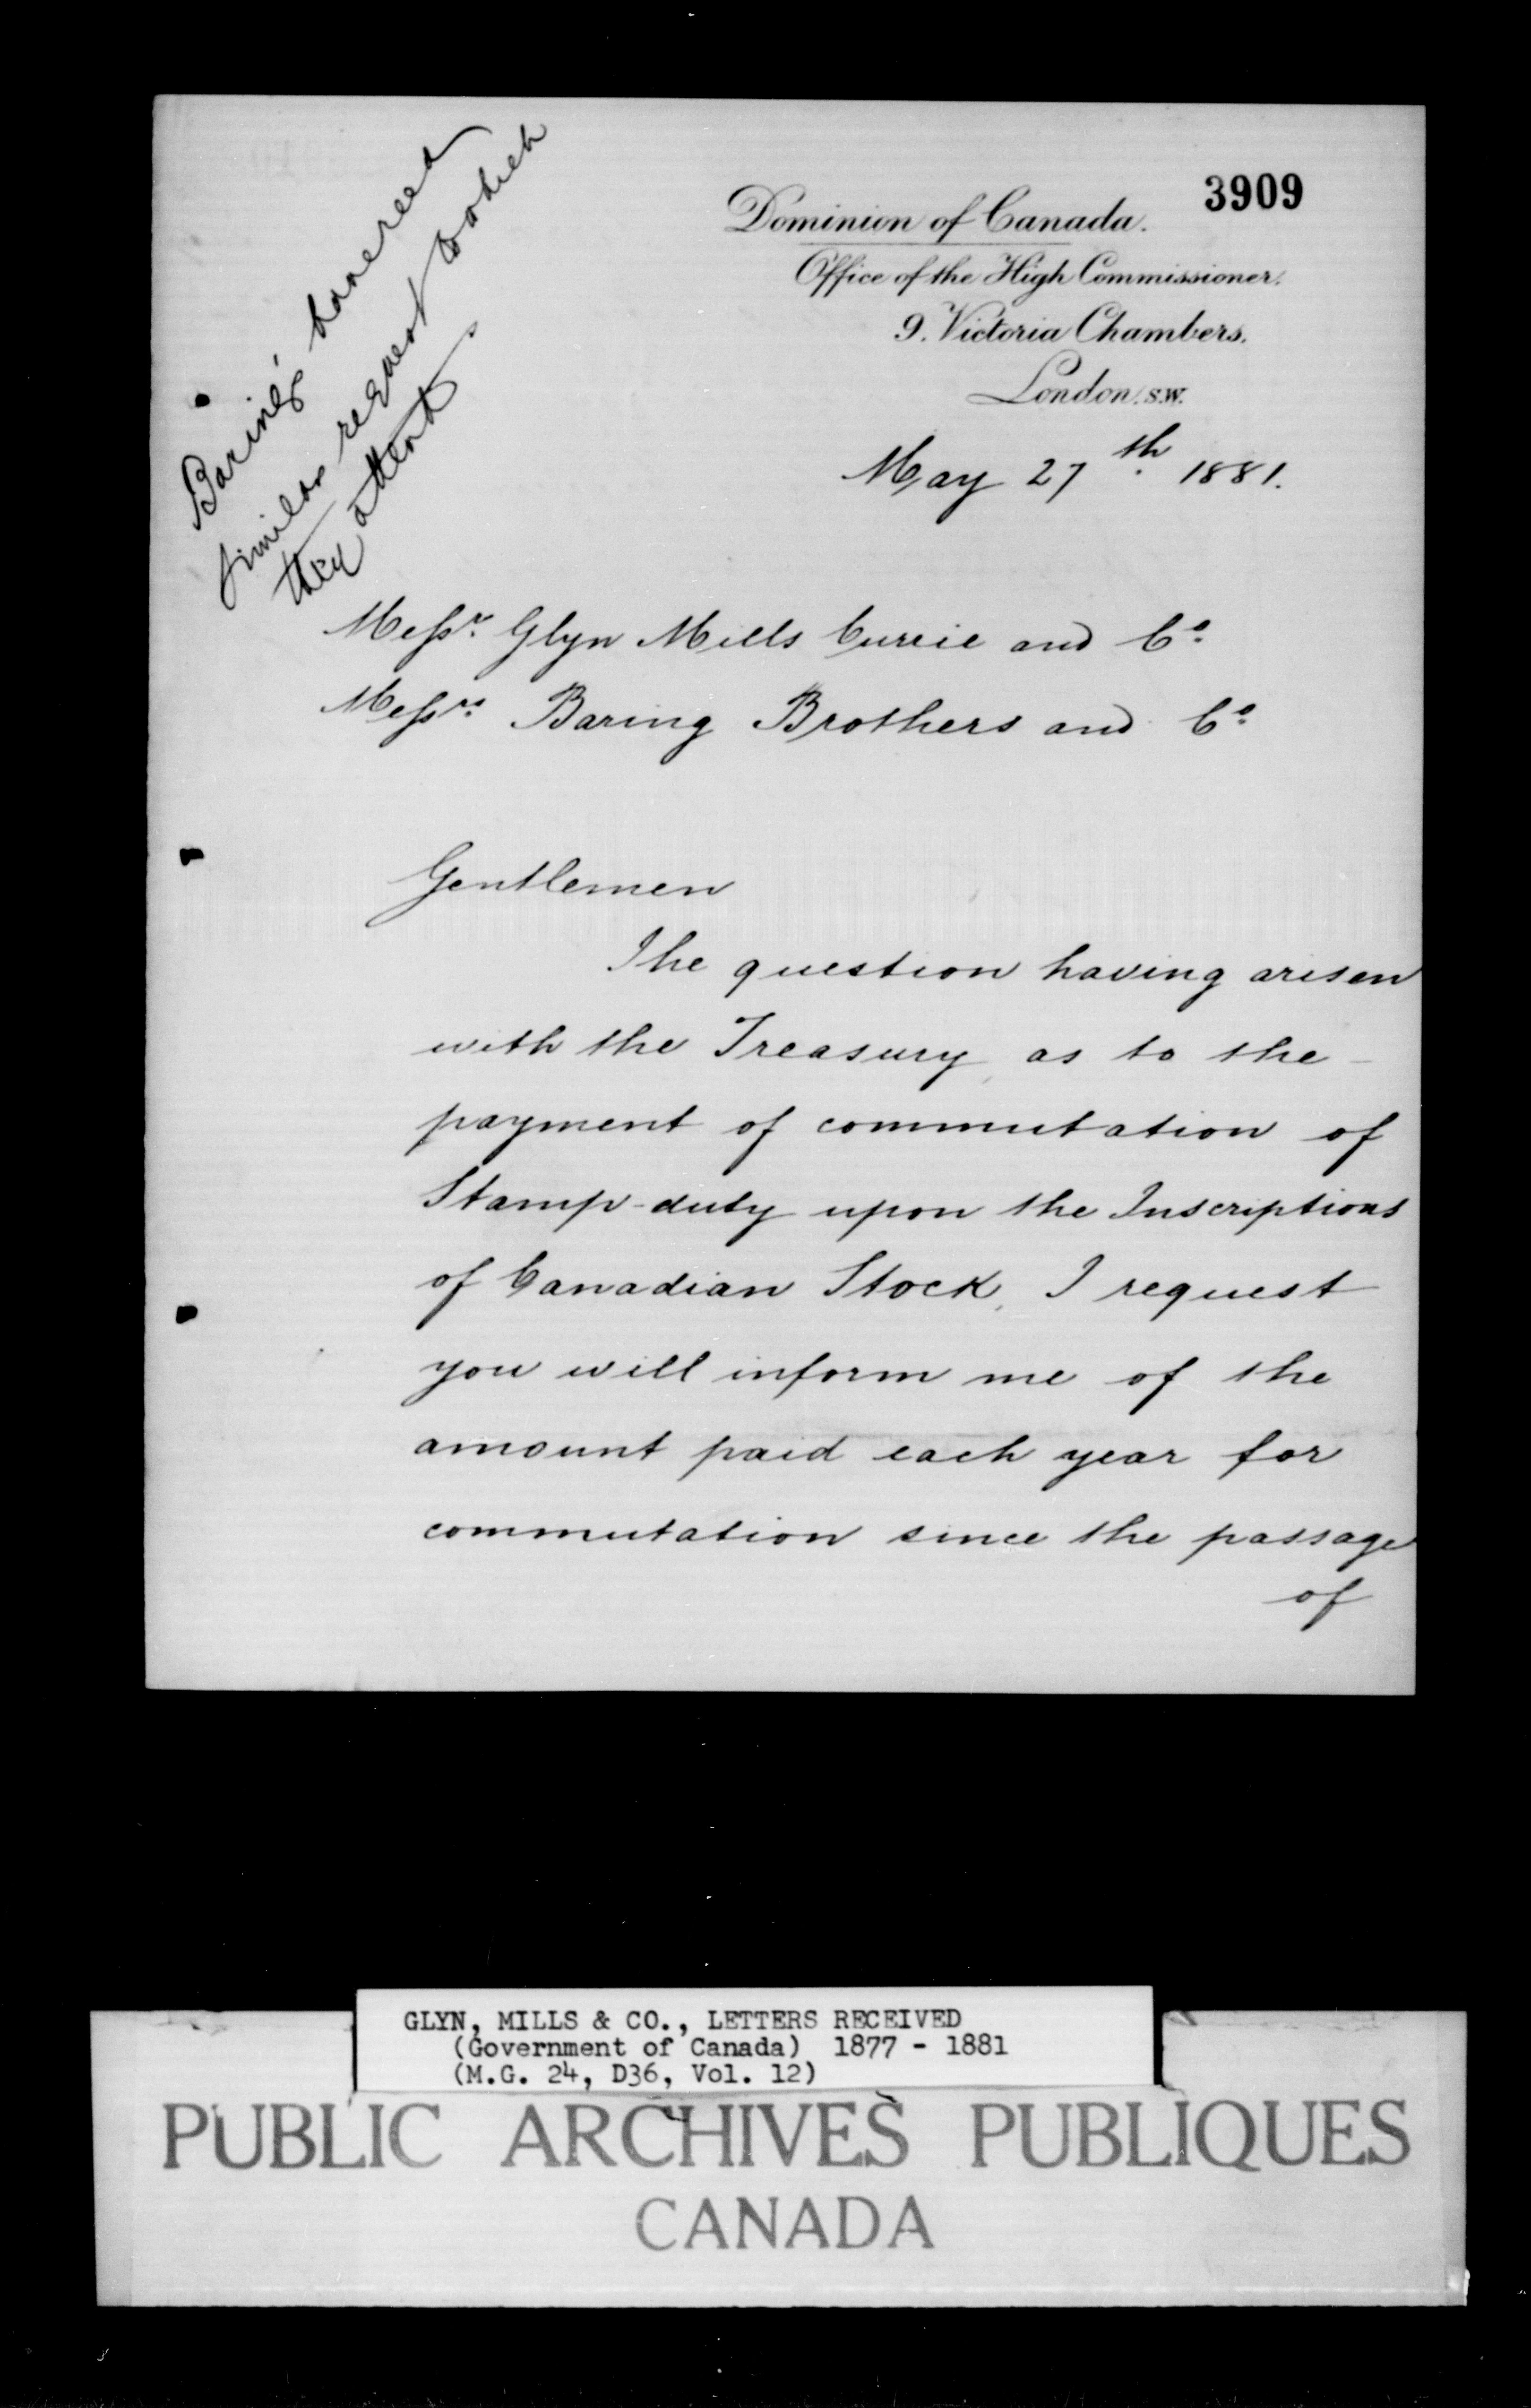 3909
Barings have recd
similar request which
they attend
Dominion of Canada.
Office of the High Commissioner.
9. Victoria Chambers.
London. S.W.
May 27th 1881.
Messr. Glyn Mills Currie and Co.
Messrs. Baring Brothers and Co.
Gentlemen
The question having arisen
with the Treasury, as to the
payment of commutation of
Stamp-duty upon the Inscriptions
of Canadian Stock, I request
you will inform me of the
amount paid each year for
commutation since the passage
of
GLYN, MILLS & CO., LETTERS RECEIVED
(Government of Canada) 1877 - 1881
(M.G. 24, D36, Vol. 12)
PUBLIC ARCHIVES PUBLIQUES
CANADA